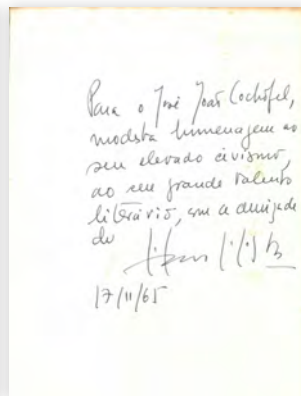 Para o José João Cochofel,
modesta homenagem ao
seu elevado civismo,
ao seu grande talento
literário, com a amizade
do
17/11/65